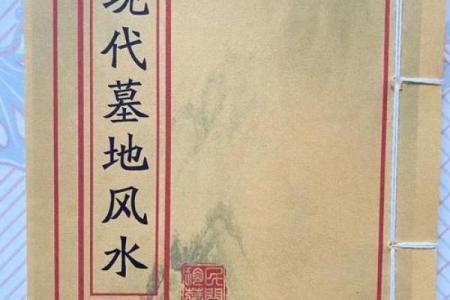 现代墓地风水